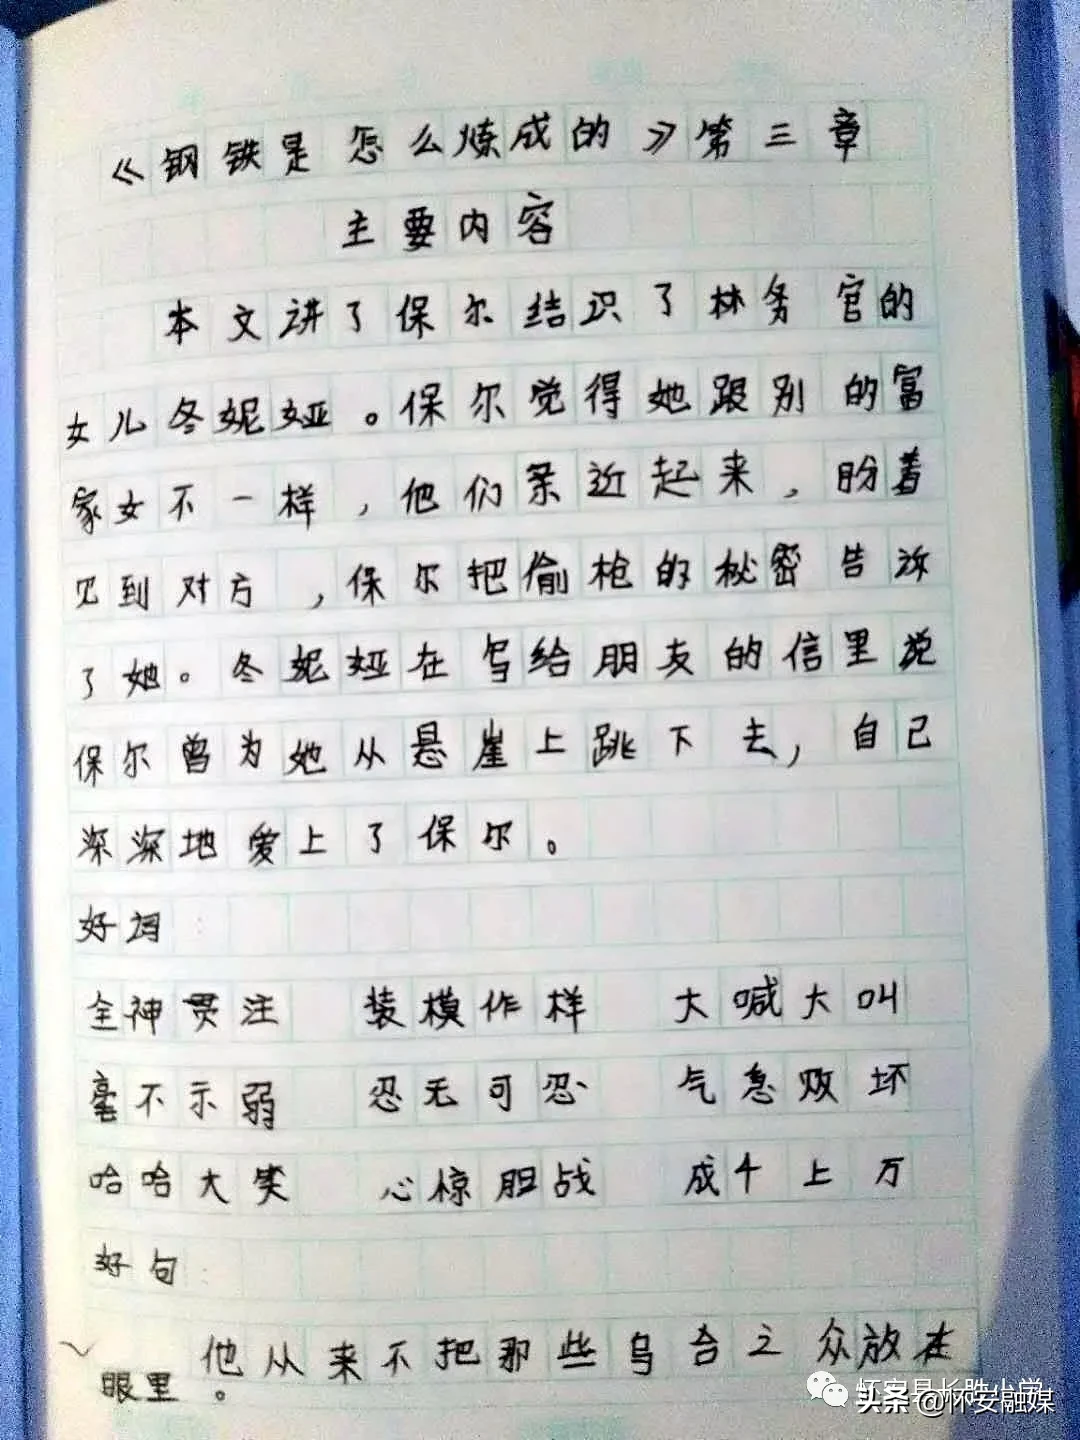 《钢铁是怎么炼成的》第三章
主要内容
本文讲了保尔结识了林务官的
女儿冬妮娅。保尔觉得她跟别的富
家女不一样，他们亲近起来，盼着
见到对方，保尔把偷枪的秘密告诉
了她。冬妮娅在写给朋友的信里说
保尔曾为她从悬崖上跳下去，自己
深深地爱上了保尔。
好词
全神贯注 装模作样 大喊大叫
毫不示弱 忍无可忍 气急败坏
哈哈大笑 心惊胆战 成千上万
好句
他从来不把那些乌合之众放在
眼里。
怀安县长胜小学
头条@怀安融媒